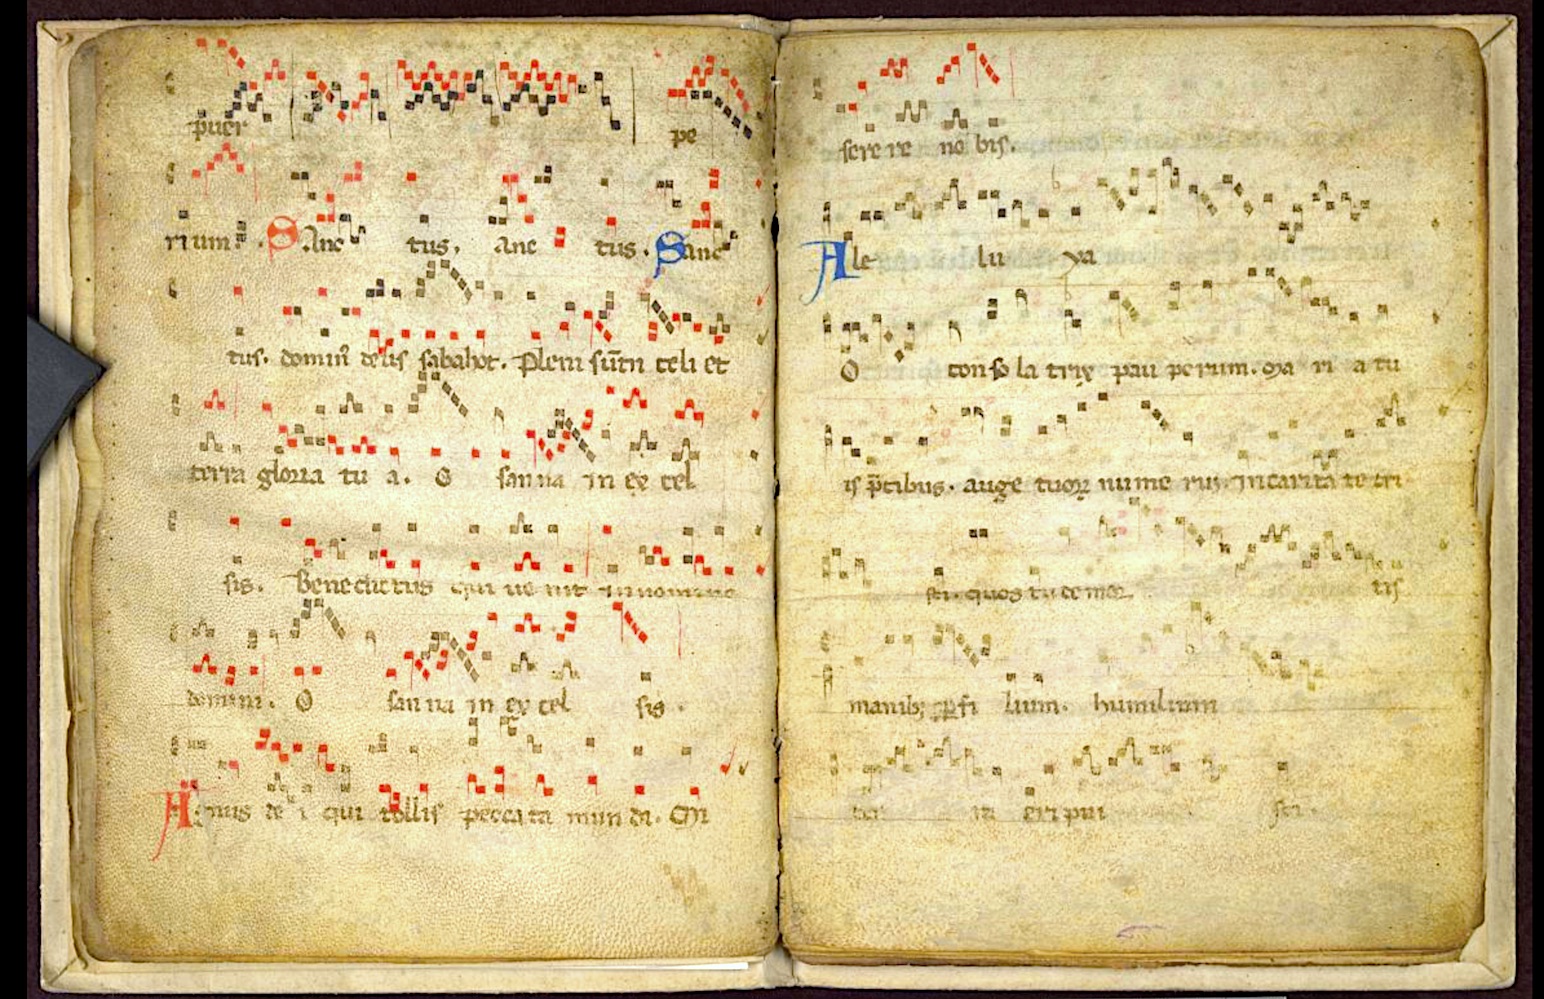 puer pe
rium. Sanc tus. anc tus. Sanc
tus. domin̄ deus sabahot. Pleni sūtn celi et
terra gloria tu a. O san na in ex cel
sis. Benedictus qui ue nit in nomine
domini. O san na in ex cel sis.
Agnus de i qui tollis pecca ta mun di. Mi
sere re no bis.
Ale lu ya
O con so la trix pau perum. Ma ri a tu
is p̄cibus. auge tuoꝝ nume rum. in carita te
quos tu de mor. tis
manibꝫ ꝑ fi lium. humilium
eri pui